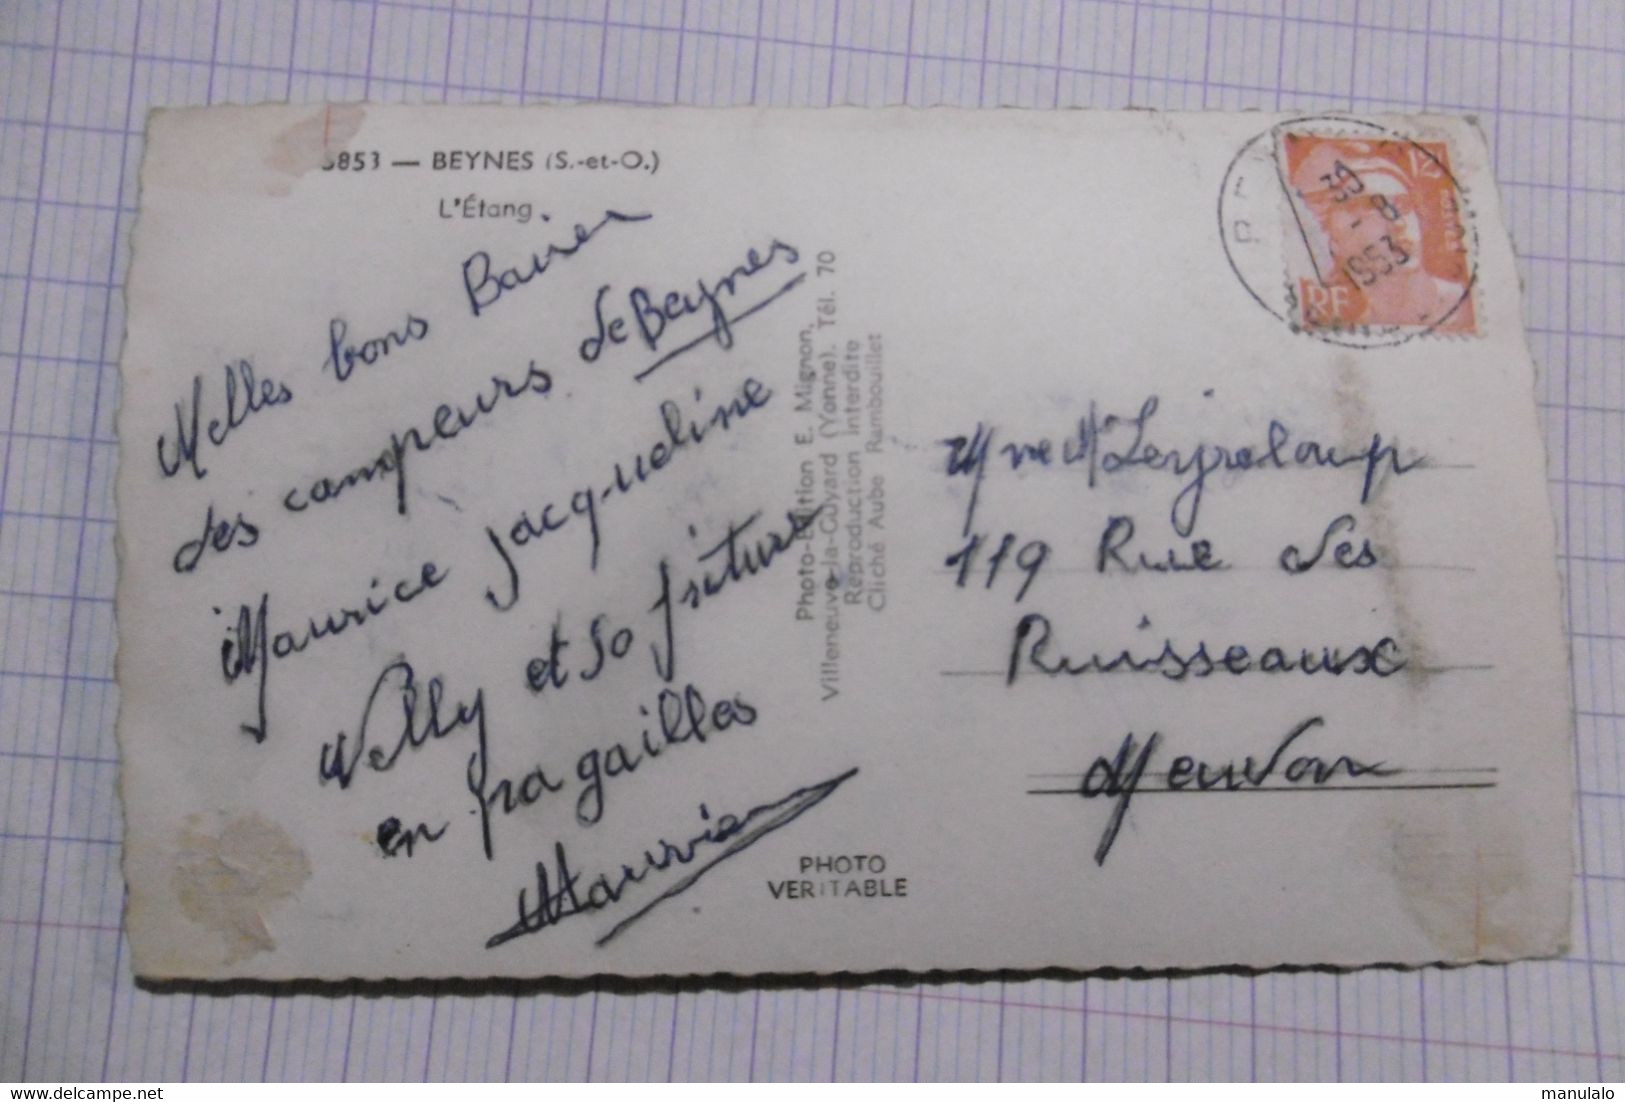 5853 — BEYNES (S.-et-O.)
L'Étang
Melles bons Baiser
des campeurs de Beynes
Maurice Jacqueline
Welly et so friture
en pagailles
Photo-Edition E. Mignon,
Villeneuve-la-Guyard (Yonne). Tél. 70
Reproduction interdite
Cliché Aube Rambouillet
PHOTO
VERITABLE
30 - 8
1953
12
RF
Mme Leyraloup
119 Rue des
Ruisseaux
Meudon
manulalo